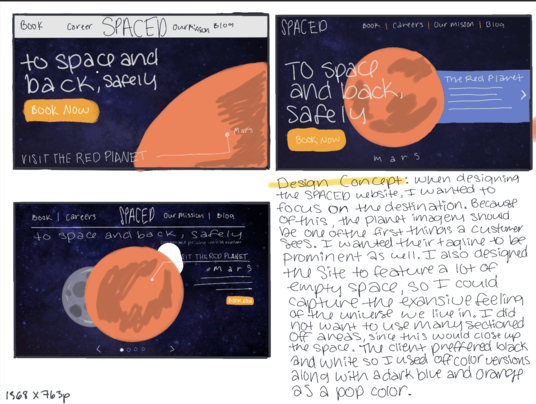 Book Career SPACED Our Mission Blog
to space and
back, safely
Book Now
Mars
VISIT THE RED PLANET
SPACED Book | Careers | Our Mission | Blog
TO space
and back,
safely
The Red Planet
Book Now
mars
Book | Careers SPACED Our Mission | Blog
to space and back, safely
VISIT THE RED PLANET
mars
Book Now
1568 X 763p
Design Concept: when designing
the SPACED website, I wanted to
focus on the destination. Because
of this, the planet imagery should
be one of the first things a customer
sees. I wanted their tagline to be
prominent as well. I also designed
the site to feature a lot of
empty space, so I could
capture the exansive feeling
of the universe we live in. I did
not want to use many sectioned
off areas, since this would close up
the space. The client preffered black
and white so I used off color versions
along with a dark blue and orange
as a pop color.